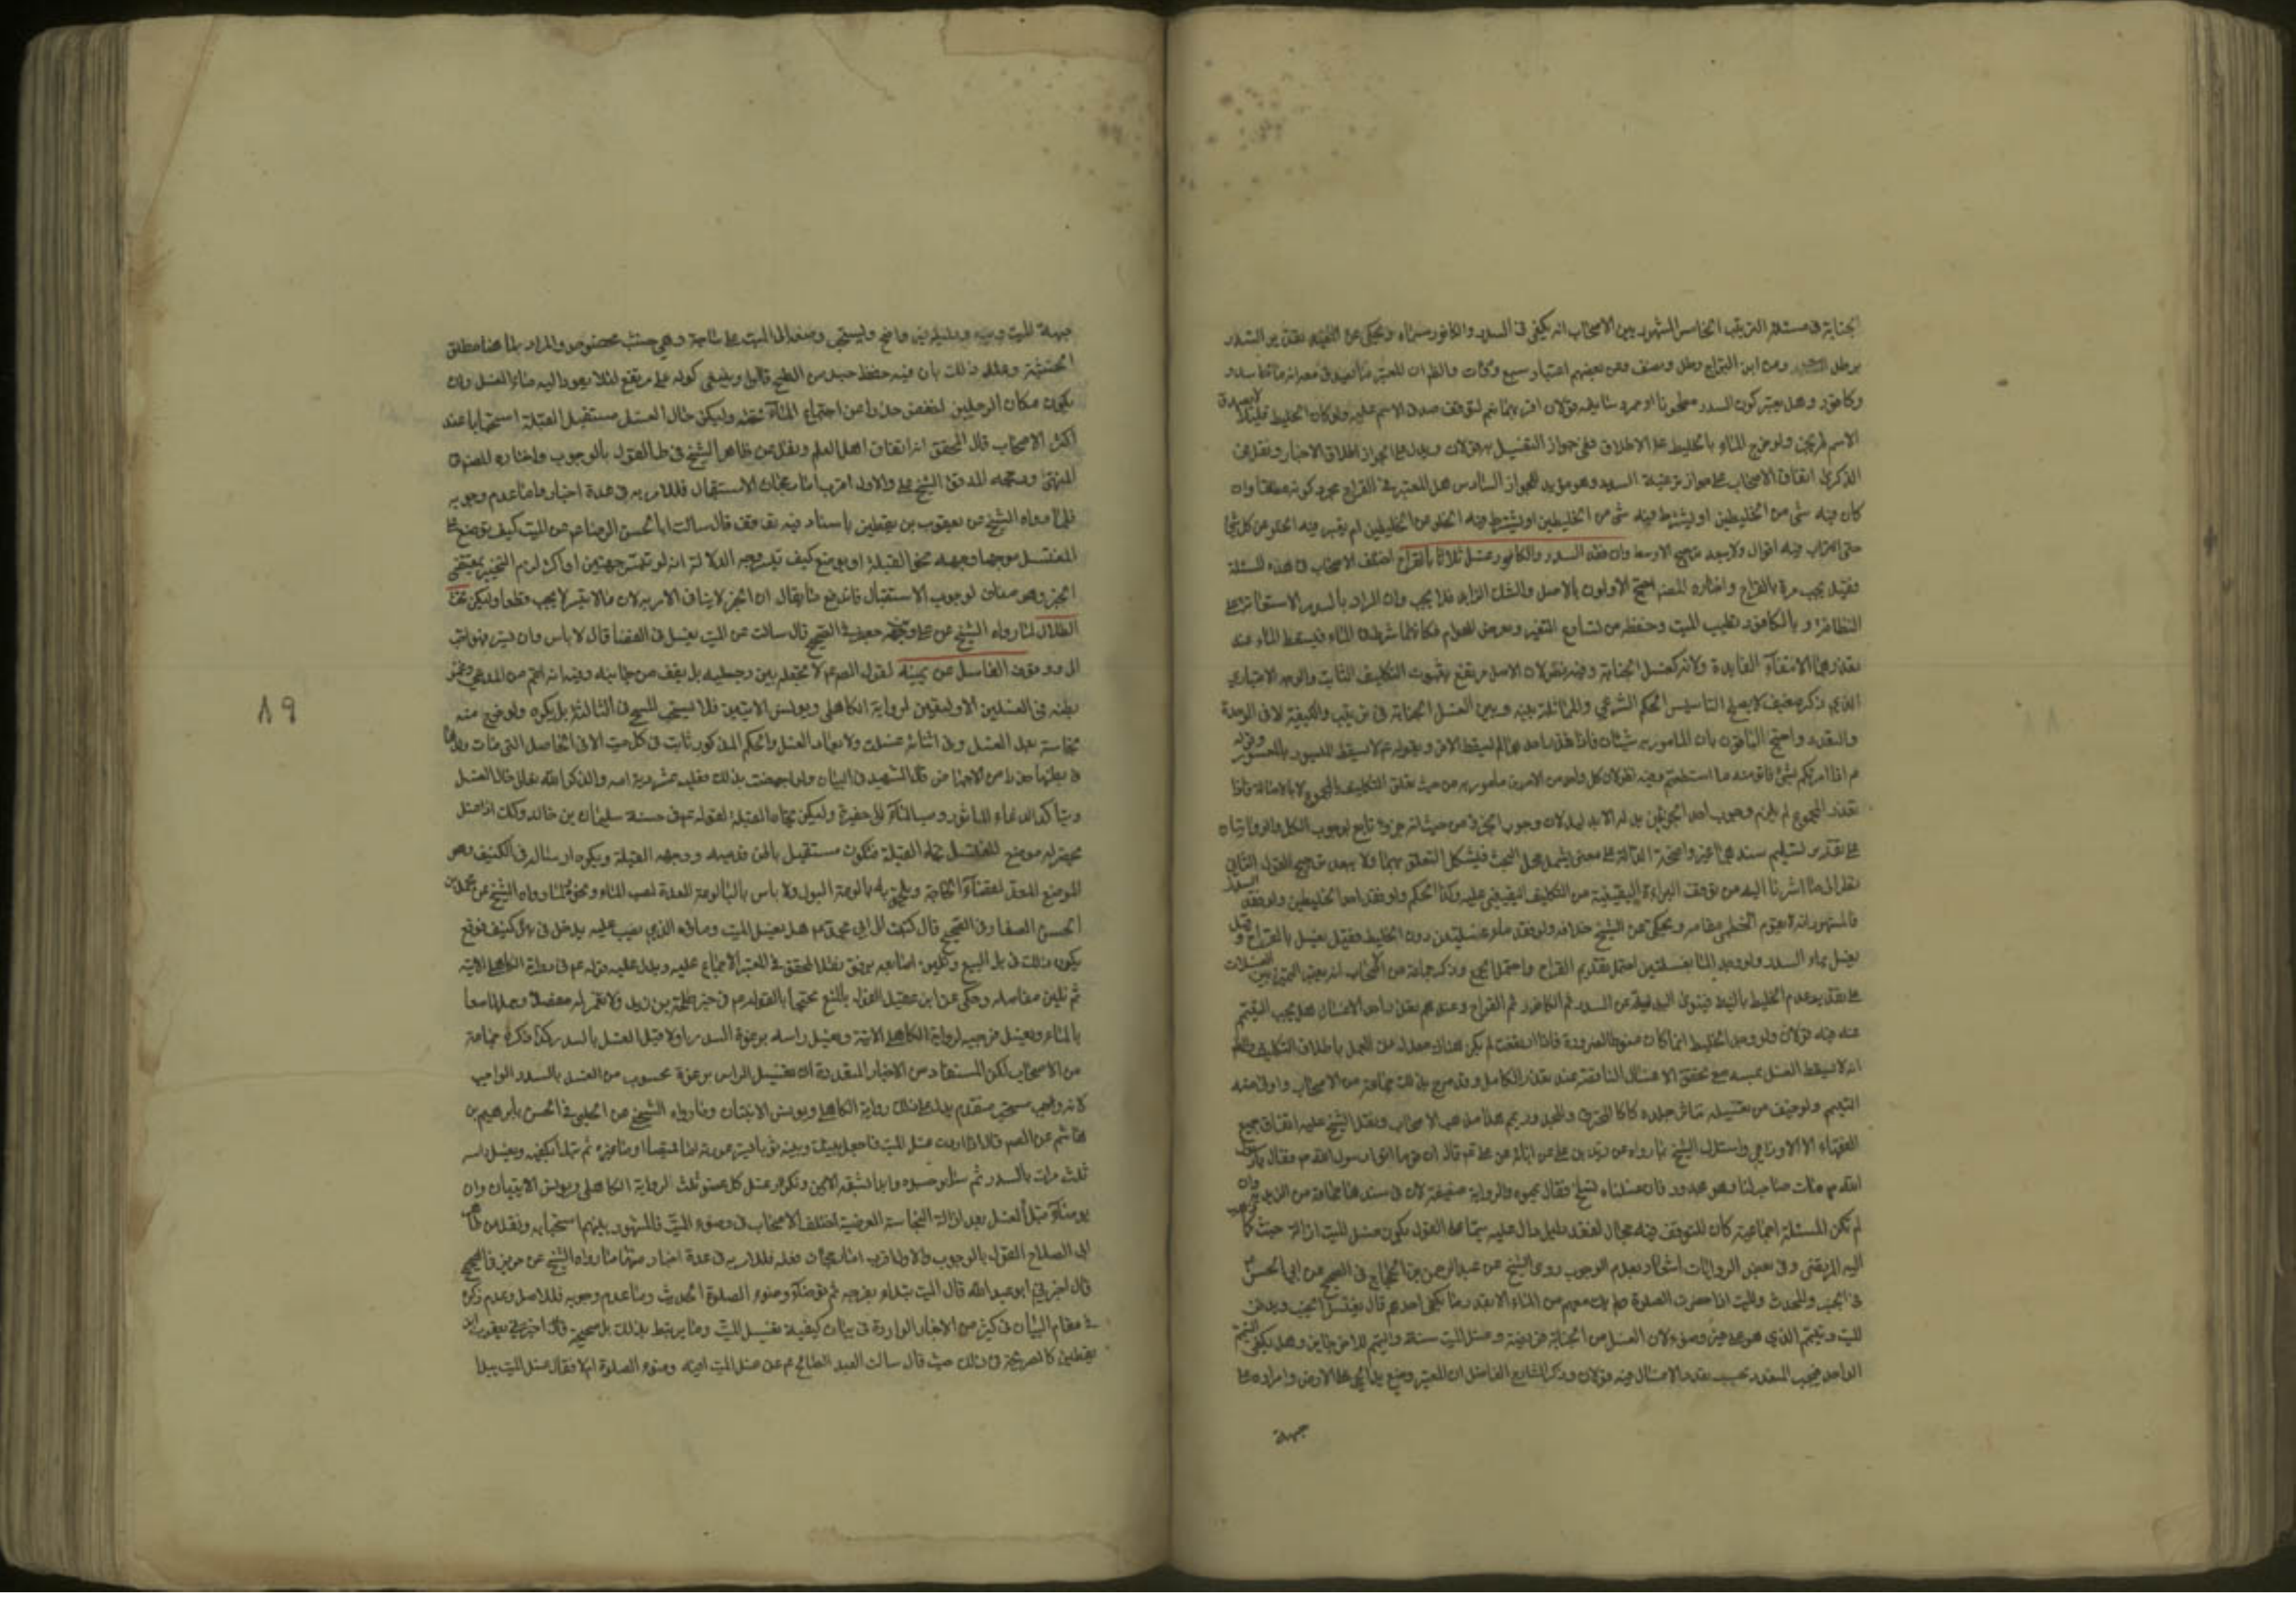 الجنابة في مسئلة الترتيب الخامس المشهور بين الاصحاب انه يكفي في السدر والكافور مسماه ويحكى عن المفيد تقدير السدر
برطل ومن ابن البراج رطل ونصف وعن بعضهم اعتبار سبع ورقات
وكافور وهل يعتبر كون السدر مطحونا او ممروسا فيه قولان صدق الاسم عليه ولو كان الخليط قليلا
الاسم لم يجز ولو مزج الماء بالخليط على الاطلاق ففي جواز التغسيل به قولان ويدل على الجواز اطلاق الاخبار ونقل في
الذكرى اتفاق الاصحاب على جواز ترغية السدر وهو مؤيد للجواز السادس هل المعتبر في القراح مجرد كونه مطلقا وان
كان فيه شئ من الخليطين او يشترط فيه الخلو عن الخليطين ام يعتبر فيه الخلو عن كل شئ
حتى التراب فيه اقوال ولا يبعد ترجيح الاوسط وان فقد السدر والكافور غسل ثلاثا بالقراح اختلف الاصحاب في هذه المسئلة
فقيل يجب مرة بالقراح واختاره المصنف احتج الاولون بالاصل والشك في الزايد فلا يجب وان المراد بالسدر الاستعانة على
النظافة وبالكافور تطييب الميت وحفظه من تسارع التغير وتعرض الهوام فكانهما شرط في الماء فيسقط الماء عند
تعذرهما لانتفاء الفايدة ولانه كغسل الجنابة وفيه نظر لان الاصل مرتفع بثبوت التكليف الثابت والوجه الاعتباري
الذي ذكره ضعيف لا يصلح لتاسيس الحكم الشرعي والمماثلة بينه وبين الغسل الجنابة في الترتيب والكيفية لا في الوحدة
والتعدد واحتج الباقون بان المامور به شيئان فاذا تعذر احدهما لم يسقط الاخر ولقوله ع لا يسقط الميسور بالمعسور وقوله
ع اذا امرتكم بشئ فاتوا منه ما استطعتم وفيه نظر لان كل واحد من الامرين مامور به من حيث تعلق التكليف بالمجموع لا بالاصالة فاذا
تعذر المجموع لم يلزم وجوب احد الجزئين بدله الا بدليل لان وجوب الجزء من حيث انه جزء تابع لوجوب الكل والروايتان
على تقدير تسليم سندهما غير واضحة الدلالة على معنى يشمل محل البحث فيشكل التعلق بهما ولا يبعد ترجيح القول الثاني
نظرا الى ما اشرنا اليه من توقف البراءة اليقينية من التكليف اليقيني عليه وكذا الحكم ولو فقد احد الخليطين ولو فقد السدر
فالمشهور انه لا يقوم الخطمي مقامه ويحكى عن الشيخ خلافه ولو فقد ماء غسلتين دون الخليط فقيل يغسل بالقراح وقيل
يغسل بماء السدر ولو وجد الماء لغسلتين احتمل تقديم القراح واحتمل الجمع وذكر جماعة من الاصحاب انه يعتبر التمييز بين الغسلات
على تقدير عدم الخليط بالنية فينوي البدلية عن السدر ثم الكافور ثم القراح وعند تعذر احد الاغسال هل يجب التيمم
عنه فيه قولان
انه لا يسقط الغسل بمسه مع تحقق الاغسال الناقصة عند تعذر الكامل وقد صرح بذلك جماعة من الاصحاب
التيمم ولو خيف من تغسيله تناثر جلده كالمحترق والمجدور يمم هذا مذهب الاصحاب ونقل الشيخ عليه اتفاق جميع
الفقهاء الا الاوزاعي واستدل الشيخ بما رواه عن زيد بن علي عن ابائه عن علي ع قال ان قوما اتوا رسول الله ص فقالوا يا رسول
الله ص مات صاحب لنا وهو مجدور فان غسلناه انسلخ فقال يمموه والرواية ضعيفة لان في سندها جماعة من الزيدية وان
لم تكن المسئلة اجماعية كان للتوقف فيه مجال لفقد دليل دال عليه سيما على القول بكون غسل الميت ازالة خبث كما
اليه المرتضى وفي بعض الروايات اشعار بعدم الوجوب روى الشيخ عن عبد الرحمن بن الحجاج في الصحيح عن ابي الحسن ع
في الجنب والمحدث والميت اذا حضرت الصلوة ومعهم من الماء الا بقدر ما يكفي احدهم قال يغتسل الجنب ويدفن
الميت ويتيمم الذي هو على غير وضوء لان الغسل من الجنابة فريضة وغسل الميت سنة والتيمم للاخر جايز وهل يكفي التيمم
الواحد ام يجب التعدد بحسب تعدد الاغسال فيه قولان وذكر الشارح الفاضل ان المعتبر وضع يد الحي على الارض وامراره على
جبهة
جبهة الميت ويديه ودليله غير واضح ويستحب وضع الميت على ساجة وهي خشب مخصوص والمراد بها هنا مطلق
الخشبة وعلل ذلك بان فيه حفظ جسد من التلطخ قالوا وينبغي كونه على مرتفع لئلا يعود اليه ماء الغسل وان
يكون مكان الرجلين اخفض حذرا من اجتماع الماء تحته وليكن حال الغسل مستقبل القبلة استحبابا عند
اكثر الاصحاب قال المحقق انه اتفاق اهل العلم ونقل عن ظاهر الشيخ في ط القول بالوجوب واختاره المصنف في
المنتهى ورجحه المدقق الشيخ علي والاول اقرب اما رجحان الاستقبال فللامر به في عدة اخبار واما عدم وجوبه
فلما رواه الشيخ عن يعقوب بن يقطين باسناد فيه توقف قال سالت ابا الحسن الرضا ع عن الميت كيف يوضع على
المغتسل موجها وجهه نحو القبلة او يوضع كيف تيسر وجه الدلالة انه لو تعسر جهتين او اكثر لزم التخيير بمقتضى
الخبر وهو مناف لوجوب الاستقبال فاندفع ما يقال ان الخبر لا ينافي الامر به لان ما لا يتيسر لا يجب قطعا وليكن تحت
الظلال لما رواه الشيخ عن علي بن جعفر في الصحيح قال سالت عن الميت يغسل في الفضا قال لا باس وان ستر فهو احب
الي ووقوف الغاسل عن يمينه لقول الص ع لا يجعله بين رجليه بل يقف من جانبه وفيه انه اعم من المدعى وغمز
بطنه في الغسلين الاولين لرواية الكاهلي ويونس الاتيتين فلا يستحب المسح في الثالثة بل يكره ولو خرج منه
نجاسة بعد الغسل وفي اثنائه غسلت ولا يعاد الغسل والحكم المذكور ثابت في كل ميت الا في الحامل التي مات ولدها
في بطنها حذرا من الاجهاض قال الشهيد في البيان ولو اجهضت بذلك فعليه عشر دية امه والذكر لله تعالى حال الغسل
ويتاكد الدعاء الماثور وصب الماء الى حفيرة وليكن تجاه القبلة لقوله ع في حسنة سليمان بن خالد وكذلك اذا غسل
يحفر له موضع المغتسل تجاه القبلة فيكون مستقبل باطن قدميه ووجهه القبلة ويكره ارساله في الكنيف وهو
الموضع المعد لقضاء الحاجة ويلحق به بالوعة البول ولا باس بالبالوعة المعدة لصب الماء ونحوه لما رواه الشيخ عن محمد بن
الحسن الصفار في الصحيح قال كتبت الى ابي محمد ع هل يغسل الميت وماؤه الذي يصب عليه يدخل في بئر كنيف فوقع
يكون ذلك في بلاليع وتليين اصابعه برفق نقل المحقق في المعتبر الاجماع عليه ويدل عليه قوله ع في رواية الكاهلي الاتية
ثم تلين مفاصله وحكى عن ابن عقيل القول بالمنع محتجا بالقوله ع في خبر طلحة بن زيد ولا تغمز له مفصلا وحملها
بالماء وبغسل فرجيه لرواية الكاهلي الاتية وبغسل راسه برغوة السدر اولا قبل الغسل بالسدر كذا ذكره جماعة
من الاصحاب لكن المستفاد من الاخبار المتعددة ان تغسيل الراس برغوة محسوب من الغسل بالسدر الواجب
لا انه مستحب متقدم يدل على ذلك رواية الكاهلي ويونس الاتيتان وما رواه الشيخ عن الحلبي في الحسن بابراهيم بن
هاشم عن الص قال اذا اردت غسل الميت فاجعل بينك وبينه ثوبا يستر عورته اما قميصا او ما غيره ثم تبدأ بكفيه وتغسل راسه
ثلث مرات بالسدر ثم سائر جسده وابدا بشقه الايمن وتكرر غسل كل عضو ثلث لرواية الكاهلي ويونس الاتيتان وان
يوضأ قبل الغسل بعد ازالة النجاسة العرضية اختلف الاصحاب في وضوء الميت فالمشهور بينهم استحبابه ونقل عن ظاهر
ابي الصلاح القول بالوجوب والاول اقرب اما رجحان فعله فللامر به في عدة اخبار منها ما رواه الشيخ عن حريز في الصحيح
قال اخبرني ابو عبد الله قال الميت يبدأ بفرجه ثم يوضأ وضوء الصلوة الحديث وما عدم وجوبه فللاصل وعدم ذكره
في مقام البيان في كثير من الاخبار الواردة في بيان كيفية تغسيل الميت وما يرتبط بذلك بل صحيحة يعقوب ابن
يقطين كالصريحة في ذلك حيث قال سالت العبد الصالح ع عن غسل الميت افيه وضوء الصلوة ام لا فقال غسل الميت يبدأ
٨٩